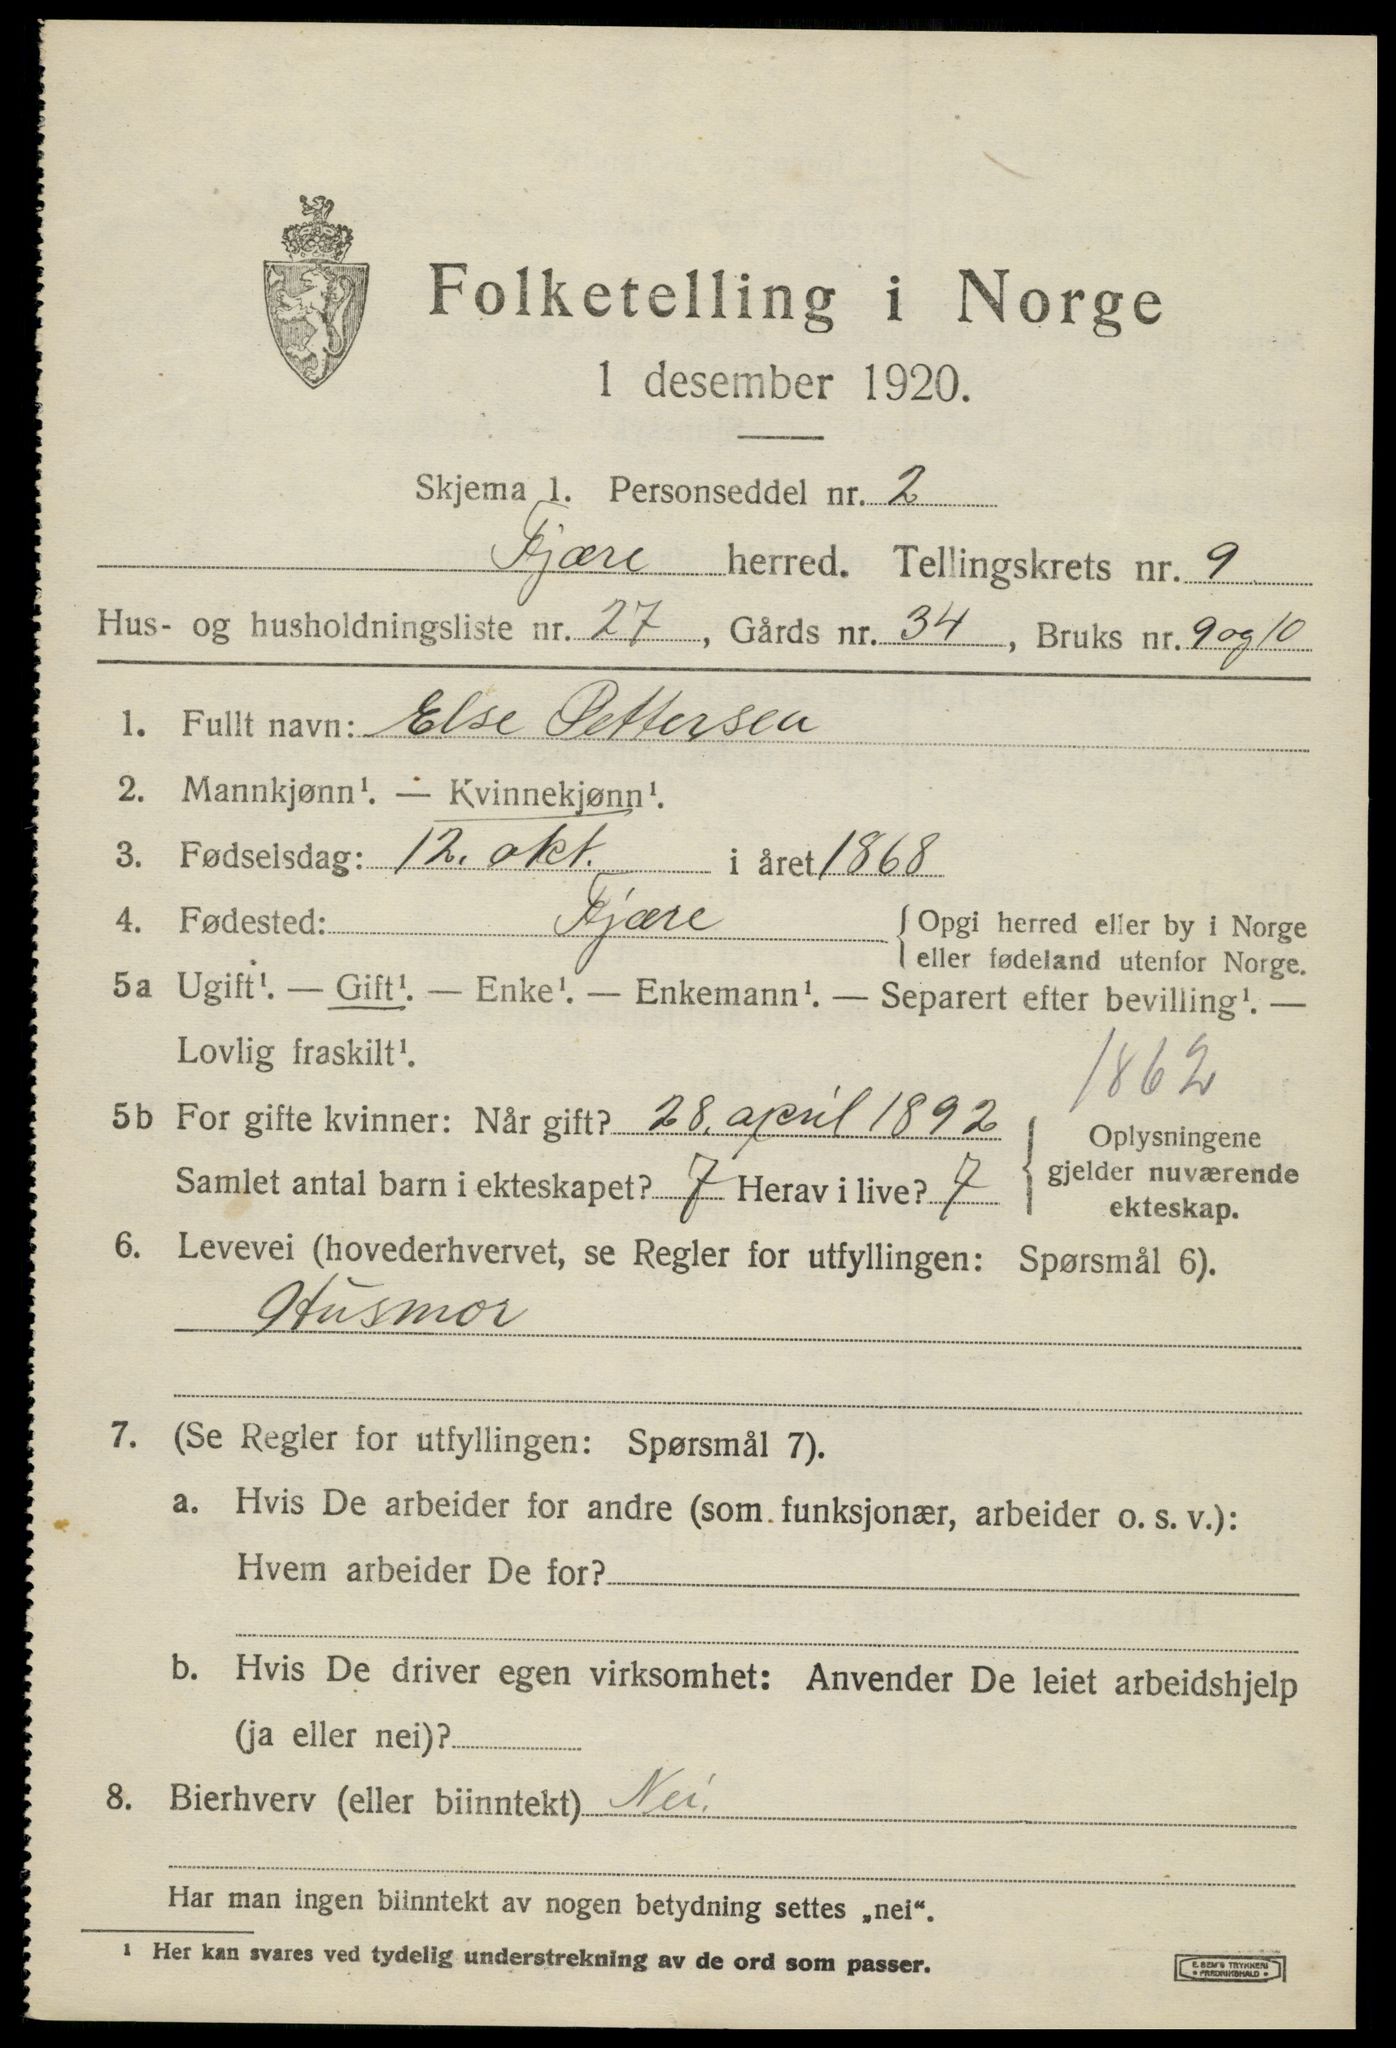 Folketelling i Norge
1 desember 1920.
Skjema 1. Personseddel nr. 2
Fjære herred. Tellingskrets nr. 9
Hus- og husholdningsliste nr. 27, Gårds nr. 34, Bruks nr. 9 og 10
1. Fullt navn: Else Pettersen
2. Mannkjønn¹. — Kvinnekjønn¹.
3. Fødselsdag: 12. okt. i året 1868
4. Fødested: Fjære { Opgi herred eller by i Norge
eller fødeland utenfor Norge.
5a Ugift¹. — Gift¹. — Enke¹. — Enkemann¹. — Separert efter bevilling¹. —
Lovlig fraskilt¹.
1862
5b For gifte kvinner: Når gift? 28. april 1892
Samlet antal barn i ekteskapet? 7 Herav i live? 7
{ Oplysningene
gjelder nuværende
ekteskap.
6. Levevei (hovederhvervet, se Regler for utfyllingen: Spørsmål 6).
Husmor
7. (Se Regler for utfyllingen: Spørsmål 7).
a. Hvis De arbeider for andre (som funksjonær, arbeider o. s. v.):
Hvem arbeider De for?
b. Hvis De driver egen virksomhet: Anvender De leiet arbeidshjelp
(ja eller nei)?
8. Bierhverv (eller biinntekt) Nei.
Har man ingen biinntekt av nogen betydning settes „nei“.
¹ Her kan svares ved tydelig understrekning av de ord som passer.
E. SEM'S TRYKKERI
• FREDRIKSHALD •